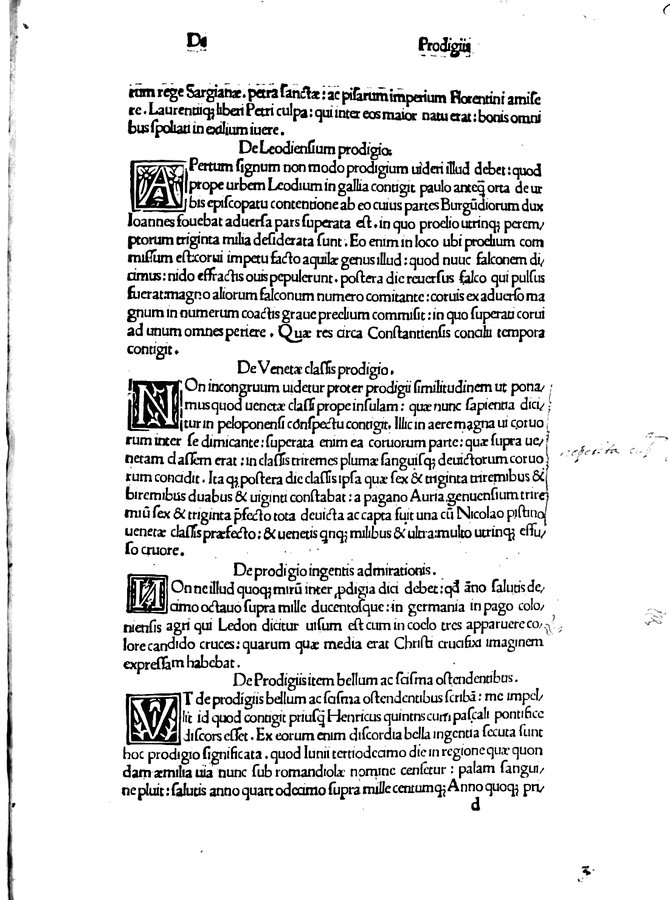 De Prodigiis
rum rege Sargianæ. petra ſanctæ: ac piſarum imperium Florentini amiſe
re. Laurentiiq; liberi Petri culpa: qui inter eos maior natu erat: bonis omni
bus ſpoliati in exilium iuere.
De Leodienſium prodigio.
APertum ſignum non modo prodigium uideri illud debet: quod
prope urbem Leodium in gallia contigit paulo anteq̄ orta de ur
bis epiſcopatu contentione ab eo cuius partes Burgūdiorum dux
Ioannes fouebat aduerſa pars ſuperata eſt. in quo proelio utrinq; perem/
ptorum triginta milia deſiderata ſunt. Eo enim in loco ubi proelium com
miſſum eſt: corui impetu facto aquilæ genus illud: quod nuuc falconem di
cimus: nido effractis ouis pepulerunt. poſtera die reuerſus falco qui pulſus
fuerat: magno aliorum falconum numero comitante: coruis ex aduerſo ma
gnum in numerum coactis graue prelium commiſit: in quo ſuperati corui
ad unum omnes periere. Quæ res circa Conſtantienſis concilii tempora
contigit.
De Venetæ claſſis prodigio.
NOn incongruum uidetur proter prodigii ſimilitudinem ut pona/
mus quod uenetæ claſſi prope inſulam: quæ nunc ſapientia dici/
tur in peloponenſi cōſpectu contigit. Illic in aere magna ui coruo
rum inter ſe dimicante: ſuperata enim ea coruorum parte: quæ ſupra ue/
netam claſſem erat: in claſſis triremes plumæ ſanguiſq; deuictorum coruo
rum concidit. Ita q; poſtera die claſſis ipſa quæ ſex & triginta triremibus &
biremibus duabus & uiginti conſtabat: a pagano Auria genuenſium trire
miū ſex & triginta p̄fecto tota deuicta ac capta fuit una cū Nicolao piſtino
uenetæ claſſis præfecto: & uenetis qnq; milibus & ultra: multo utrinq; effu/
ſo cruore.
De prodigio ingentis admirationis.
NOn ne illud quoq; mirū inter ꝓdigia dici debet: qđ āno ſalutis de/
cimo octauo ſupra mille ducentoſque: in germania in pago colo/
nienſis agri qui Ledon dicitur uiſum eſt cum in coelo tres apparuere co/
lore candido cruces: quarum quæ media erat Chriſti crucifixi imaginem
expreſſam habebat.
De Prodigiis item bellum ac ſciſma oſtendentibus.
VT de prodigiis bellum ac ſciſma oſtendentibus ſcribā: me impel/
lit id quod contigit priuſq̄ Henricus quintus cum paſcali pontifice
diſcors eſſet. Ex eorum enim diſcordia bella ingentia ſecuta ſunt
hoc prodigio ſignificata. quod Iunii tertiodecimo die in regione quæ quon
dam æmilia uia nunc ſub romandiolæ nomine cenſetur: palam ſangui/
ne pluit: ſalutis anno quart odecimo ſupra mille centumq; Anno quoq; pri/
d
3